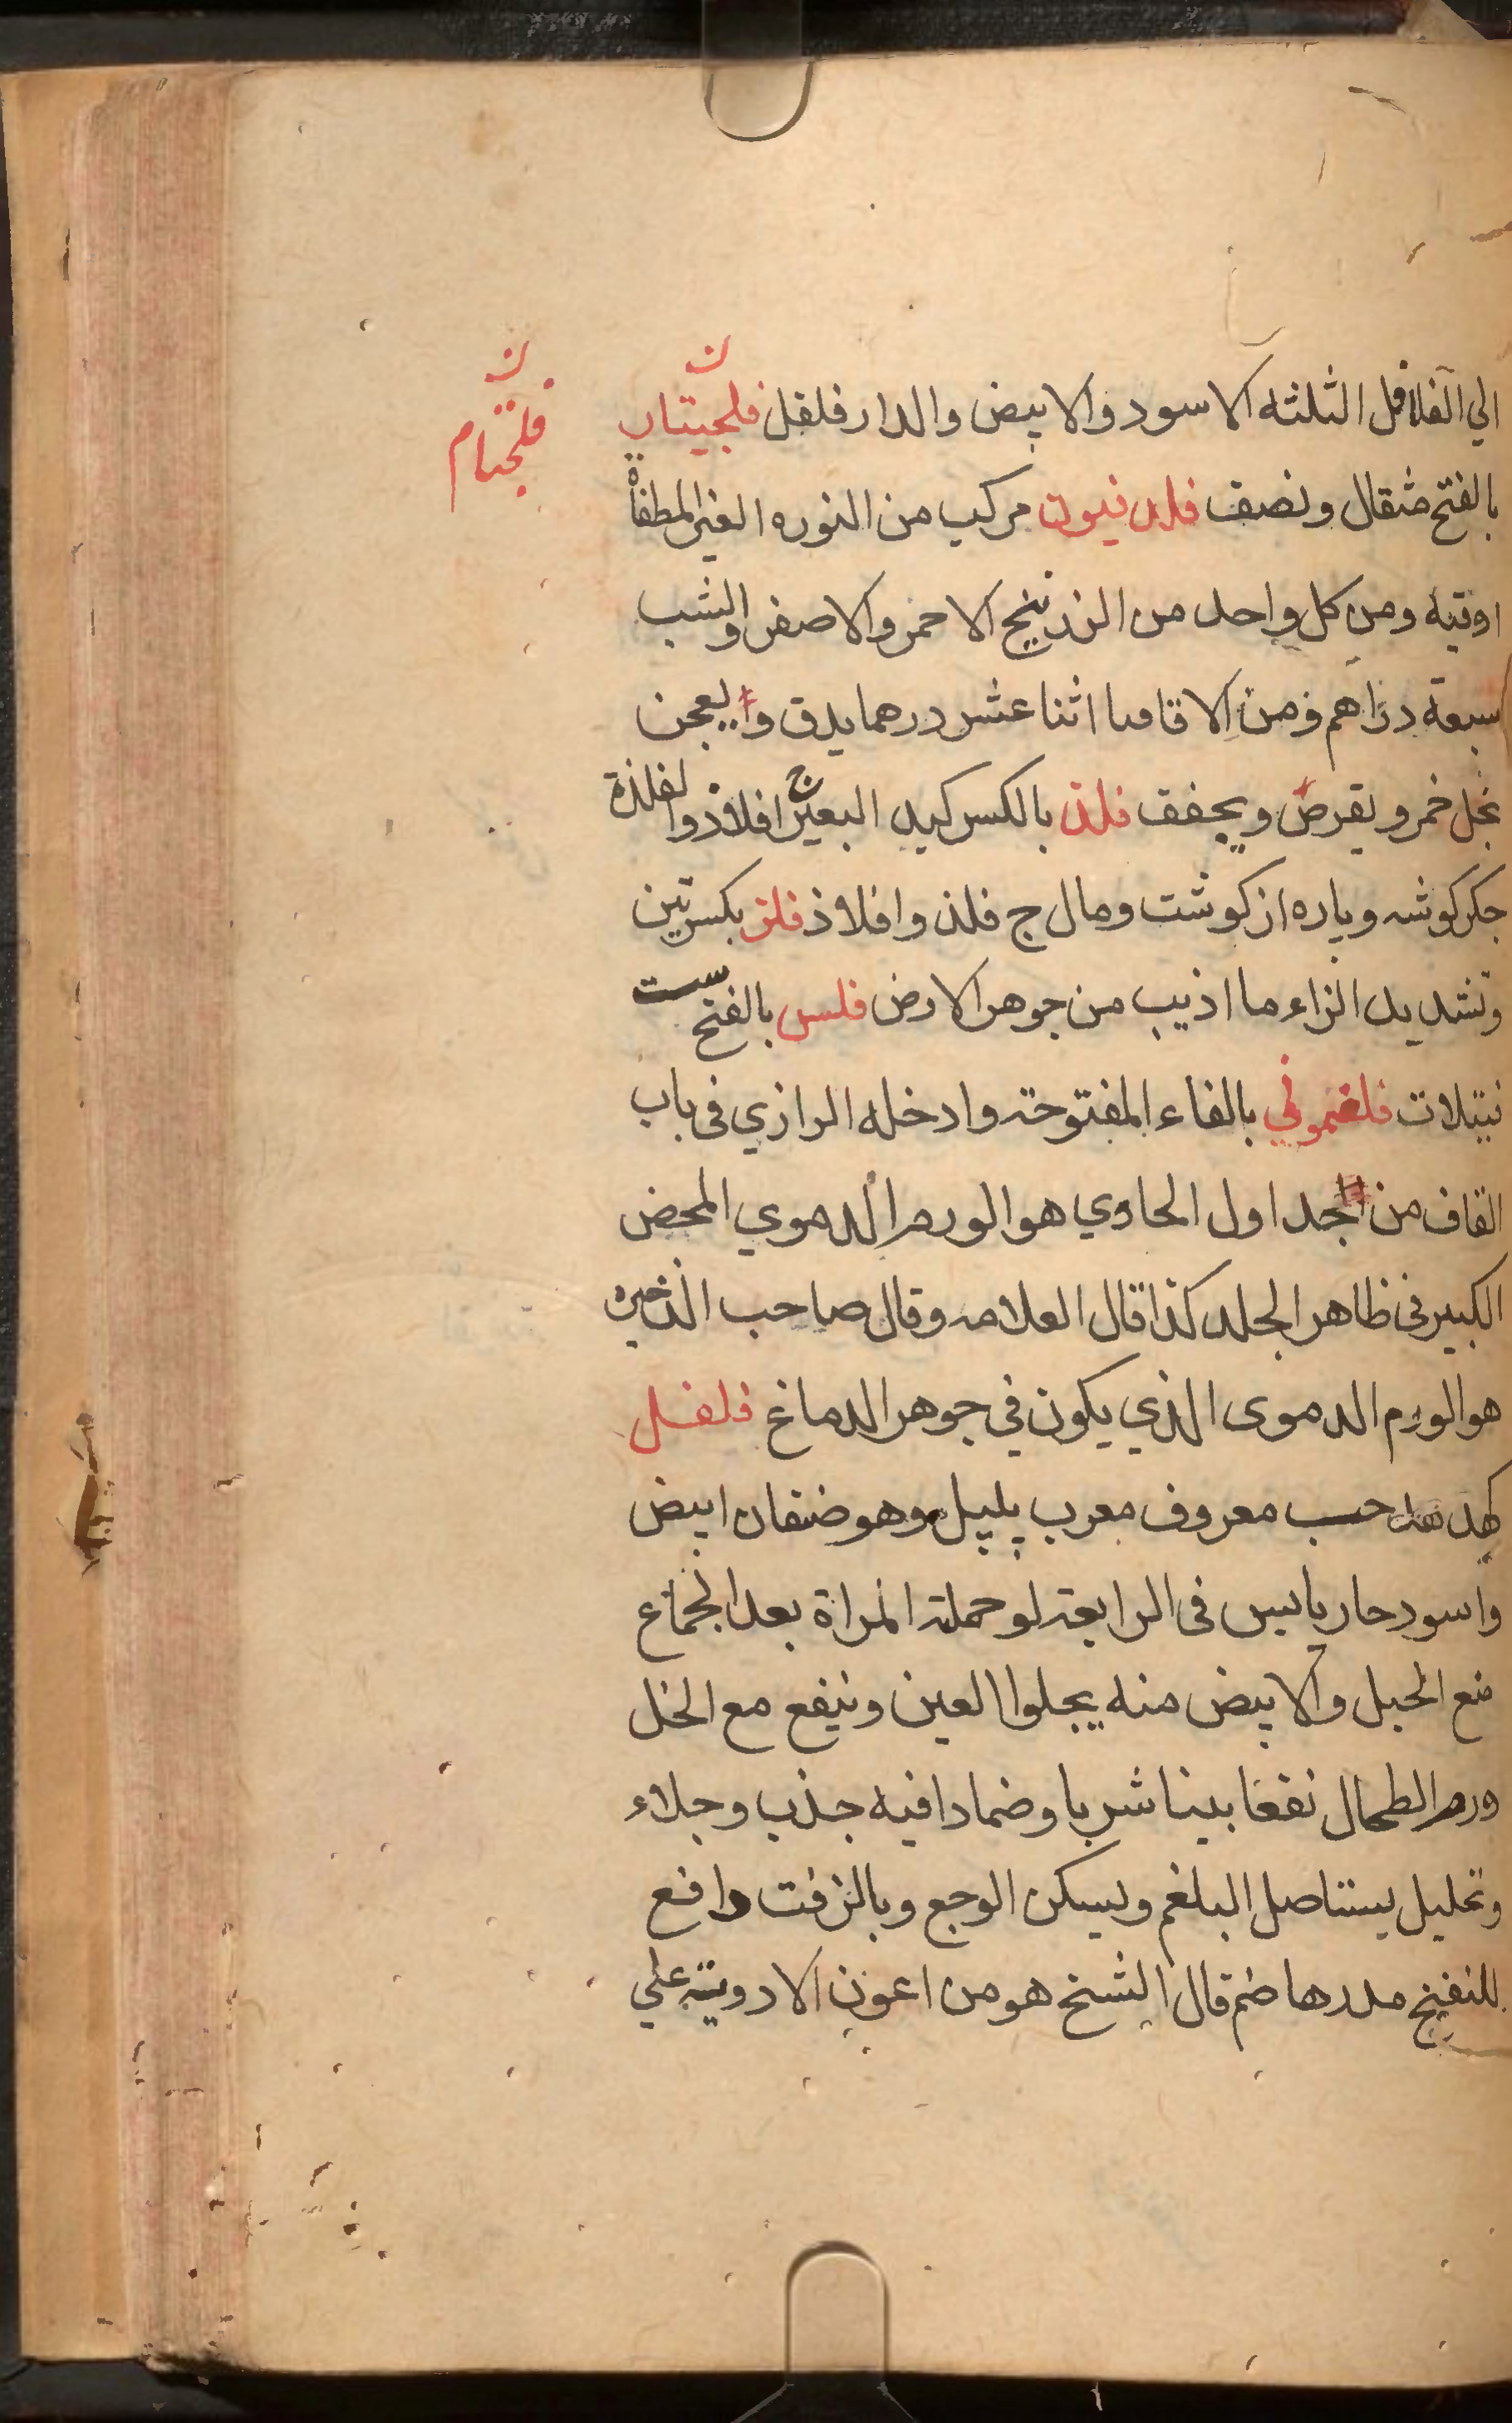 الي الفلافل الثلثه الاسود والابيض والدار فلفل فلجيتان
ن
فلجيتام
ن
بالفتح مثقال ونصف فلدنيون مركب من النوره الغير المطفاة
اوقيه ومن كل واحد من الزرنيخ الاحمر والاصفر والشب
سبعة دراهم ومن الاقاقيا اثنا عشر درهما يدق ويعجن
بخل خمر ويقرص ويجفف فلذ بالكسر كبد البعير ج افلاذ والفلذة
جكر كوشه وپاره از كوشت ومال ج فلذ وافلاذ فلز بكسرتين
وتشديد الزاء ما اذيب من جوهر الارض فلس بالفتح ست
نتيلات فلغموني بالفاء المفتوحة وادخله الرازي فى باب
القاف من جداول الحاوي هو الورم الدموي المحض
الكبير فى ظاهر الجلد كذا قال العلامه وقال صاحب الذخيره
هو الورم الدموى الذي يكون في جوهر الدماغ فلفل
كهدهد حب معروف معرب پلپل وهو صنفان ابيض
واسود حار يابس فى الرابعة لو حملته المراة بعد الجماع
منع الحبل والابيض منه يجلوا العين وينفع مع الخل
ورم الطحال نفعا بينا شربا وضمادا فيه جذب وجلاء
وتحليل يستاصل البلغم ويسكن الوجع وبالزفت دافع
للنفخ مدر هاضم قال الشيخ هو من اعون الادوية علي